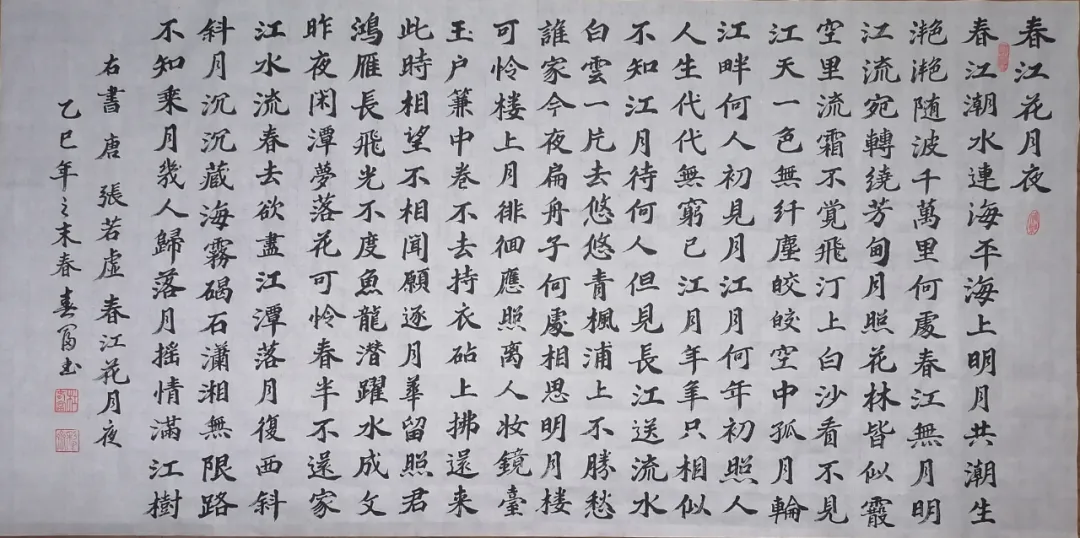 春江花月夜
春江潮水連海平海上明月共潮生
滟滟随波千萬里何處春江無月明
江流宛轉繞芳甸月照花林皆似霰
空里流霜不覺飛汀上白沙看不見
江天一色無纤塵皎皎空中孤月輪
江畔何人初見月江月何年初照人
人生代代無窮已江月年年只相似
不知江月待何人但見長江送流水
白雲一片去悠悠青楓浦上不勝愁
誰家今夜扁舟子何處相思明月楼
可怜楼上月徘徊應照离人妆鏡臺
玉户簾中卷不去持衣砧上拂還来
此時相望不相聞願逐月華留照君
鴻雁長飛光不度魚龍潜躍水成文
昨夜闲潭夢落花可怜春半不還家
江水流春去欲盡江潭落月復西斜
斜月沉沉藏海霧碣石瀟湘無限路
不知乘月幾人歸落月摇情滿江樹
右書唐 張若虚春江花月夜
乙巳年之末春